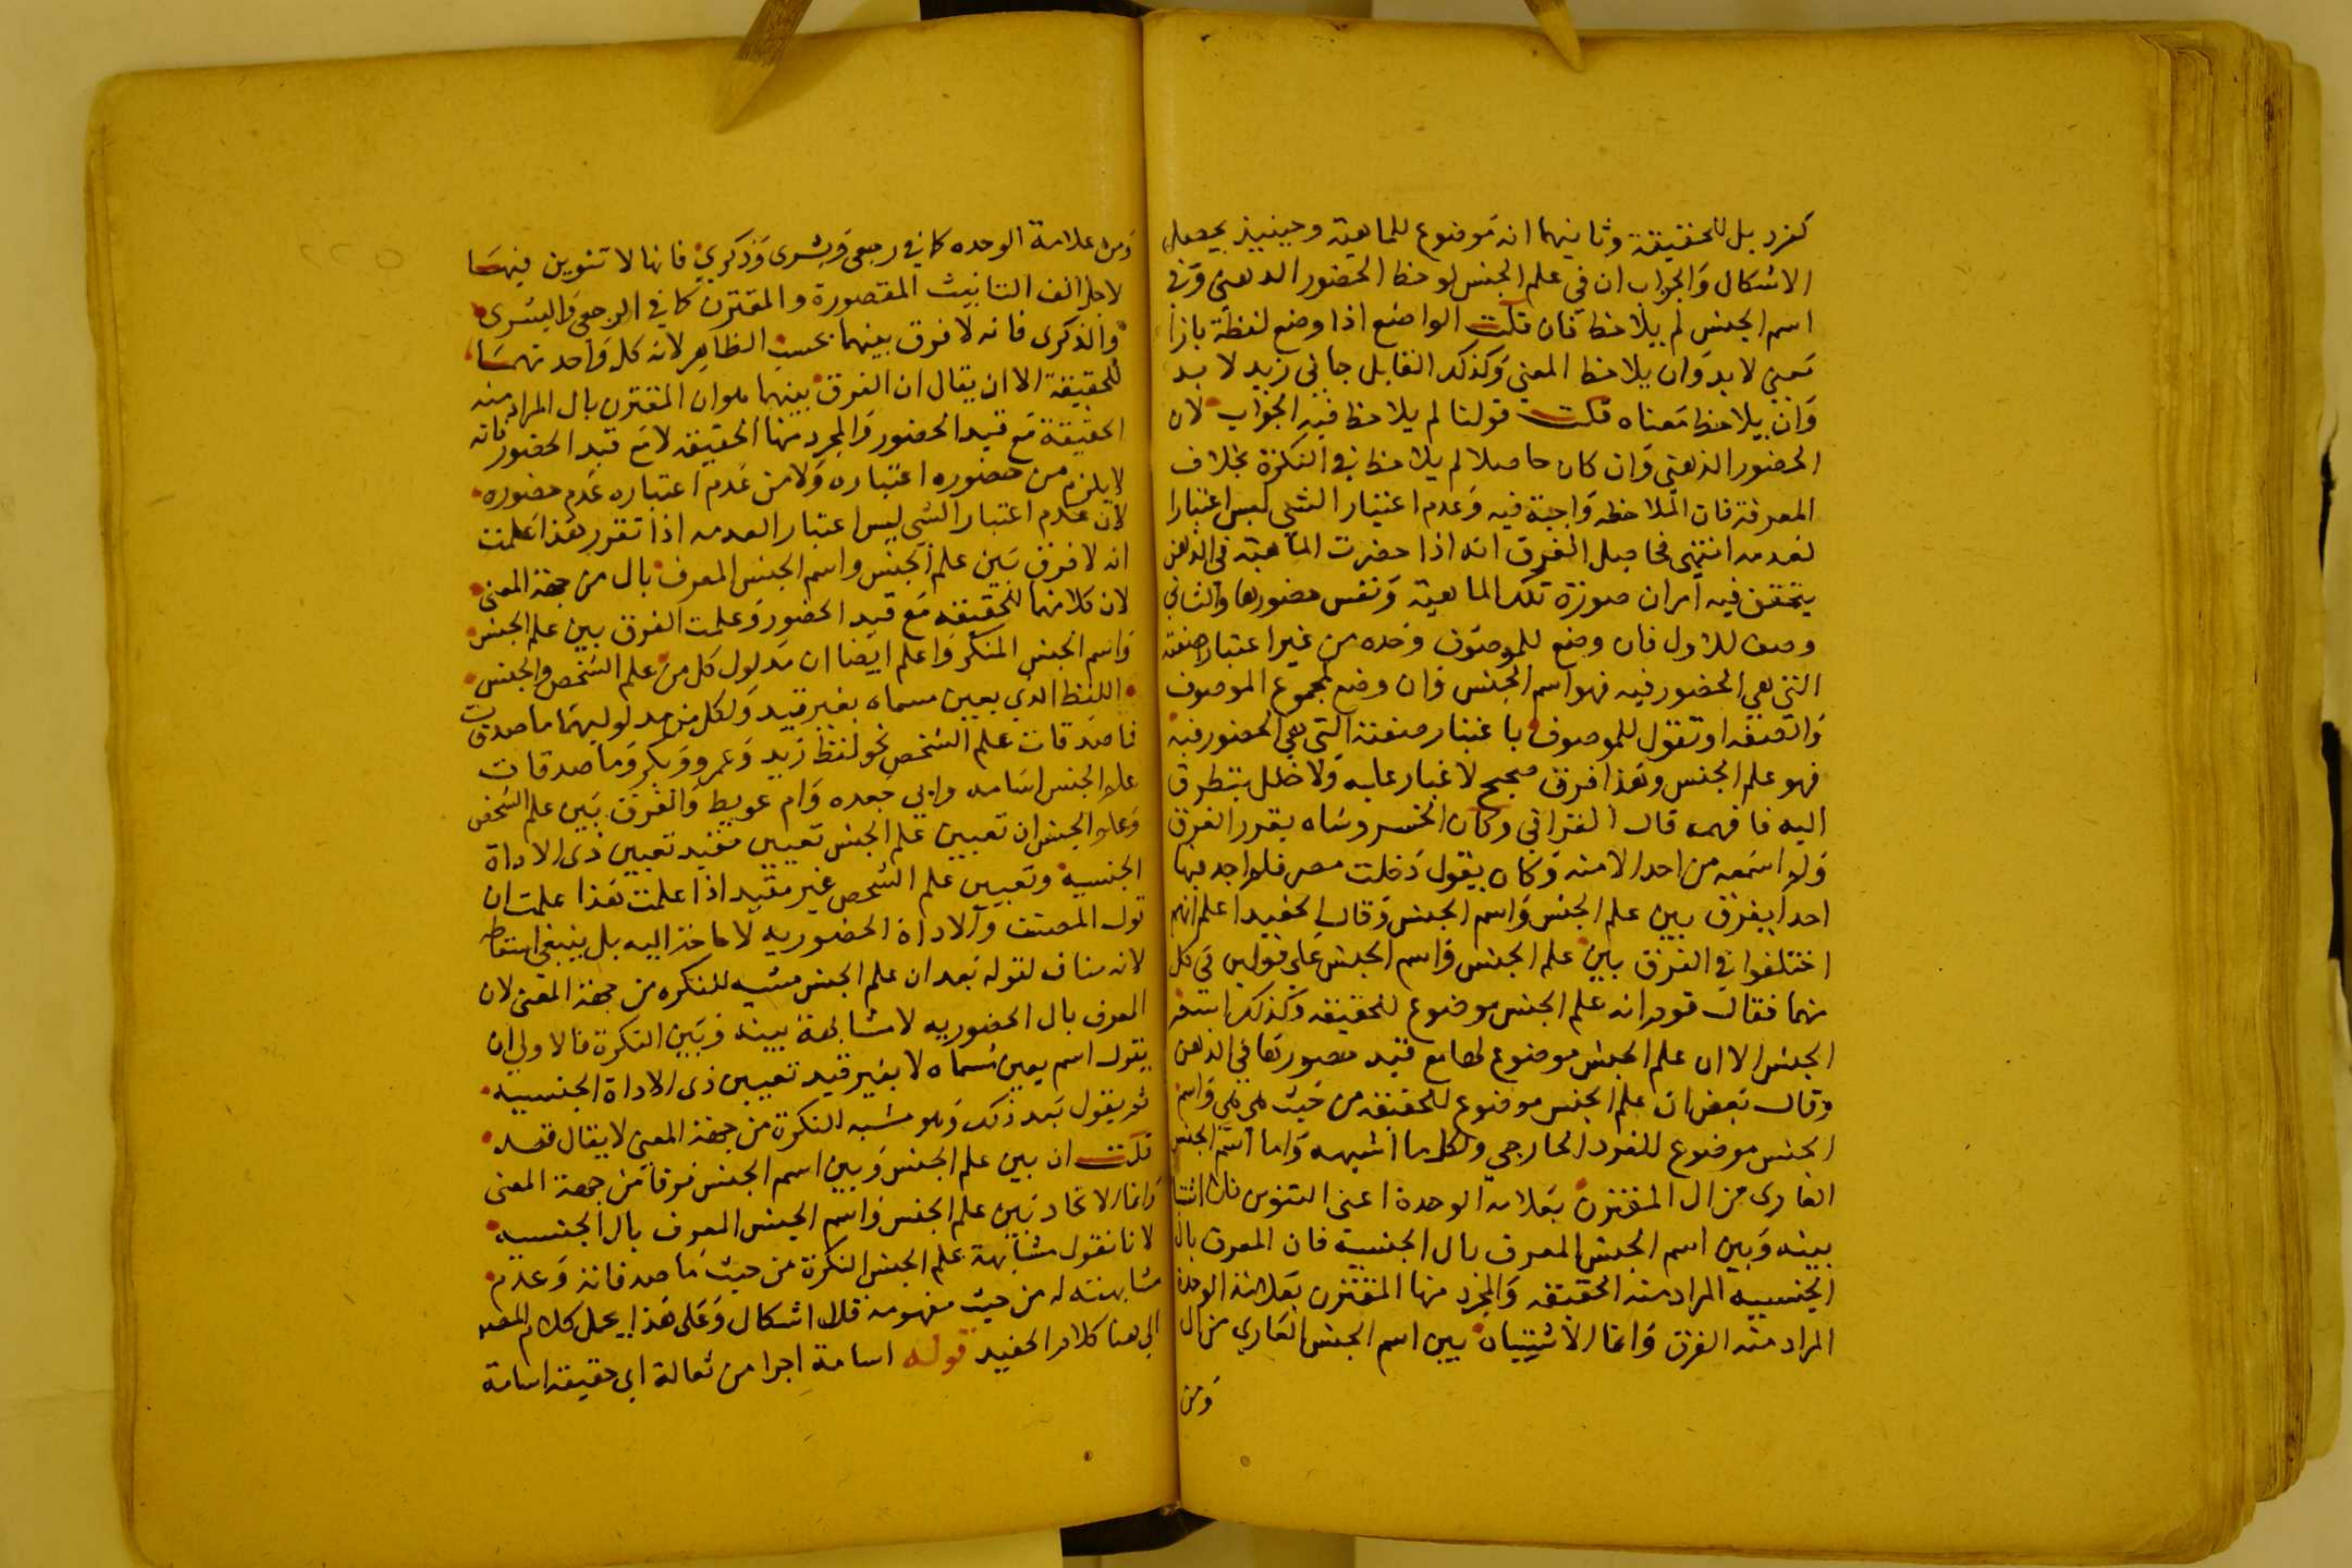 كفرد بل للحقيقة وثانيهما انه موضوع للماهية وحينيذ يحصل
الاشكال والجواب ان في علم الجنس لوحظ الحضور الذهني وفي
اسم الجنس لم يلاحظ فان قلت الواضع اذا وضع لفظة بازا
معني لا بد وان يلاحظ المعني وكذلك القايل جاني زيد لا بد
وان يلاحظ معناه قلت قولنا لم يلاحظ فيه الجواب لان
الحضور الذهني وان كان حاصلا لم يلاحظ في النكرة بخلاف
المعرفة فان الملاحظه واجبة فيه وعدم اعتبار الشي ليس اعتبارا
لعدمه انتهى فحاصل الفرق انه اذا حضرت الماهية في الذهن
يتحقق فيه امران صورة تلك الماهية ونفس حضورها والثاني
وصف للاول فان وضع للموصوف وحده من غير اعتبار صفته
التي هي الحضور فيه فهو اسم الجنس وان وضع لمجموع الموصوف
والصفه او تقول للموصوف باعتبار صفته التي هي الحضور فيه
فهو علم الجنس وهذا فرق صحيح لا غبار عليه ولا خلل يتطرق
اليه فافهمه قال القرافي وكان الخسروشاه يقرر الفرق
ولم اسمعه من احد الا منه وكان يقول دخلت مصر فلم اجد بها
احدا يفرق بين علم الجنس واسم الجنس وقال الحفيد اعلم انهم
اختلفوا في الفرق بين علم الجنس واسم الجنس على قولين في كل
منهما فقال قوم انه علم الجنس موضوع للحقيقه وكذلك اسم
الجنس الا ان علم الجنس موضوع لها مع قيد حضورها في الذهن
وقال بعض ان علم الجنس موضوع للحقيقه من حيث هي هي واسم
الجنس موضوع للفرد الخارجي ولكل ما اشبهه واما اسم الجنس
العاري من ال المقترن بعلامة الوحدة اعني التنوين
بينه وبين اسم الجنس المعرف بال الجنسية فان المعرف بال
الجنسيه المراد منه الحقيقه والمجرد منها المقترن بعلامة الوحدة
المراد منه الفرق وانما الاشتباه بين اسم الجنس العاري من ال
ومن
ومن علامة الوحده كما في رجعى وبشرى وذكري فانها لا تنوين فيهما
لاجل الف التانيث المقصورة والمقترن كما في الرجعى والبشرى
والذكرى فانه لا فرق بينهما بحسب الظاهر لانه كل واحد منهما
للحقيقة الا ان يقال ان الفرق بينهما هو ان المقترن بال المراد منه
الحقيقة مع قيد الحضور والمجرد منها الحقيقه لا مع قيد الحضور فانه
لا يلزم من حضوره اعتباره ولا من عدم اعتباره عدم حضوره
لان عدم اعتبار الشي ليس اعتبار العدمه اذا تقرر هذا علمت
انه لا فرق بين علم الجنس واسم الجنس المعرف بال من جهة المعنى
لان كلا منهما للحقيقه مع قيد الحضور وعلمت الفرق بين علم الجنس
واسم الجنس المنكر واعلم ايضا ان مدلول كل من علم الشخص والجنس
اللفظ الذي يعين مسماه بغير قيد ولكل من مدلوليهما ما صدقات
فما صدقات علم الشخص نحو لفظ زيد وعمرو وبكر وما صدقات
علم الجنس اسامه وابي جعده وام عريط والفرق بين علم الشخص
وعلم الجنس ان تعيين علم الجنس تعيين مقيد تعيين ذى الاداة
الجنسية وتعيين علم الشخص غير مقيد اذا علمت هذا علمت ان
قول المصنف والاداة الحضوريه لا حاجة اليه بل ينبغي اسقاطه
لانه مناف لقوله بعد ان علم الجنس مشبه للنكره من جهة المعنى لان
المعرف بال الحضوريه لا مشابهة بينه وبين النكرة فالاولى ان
يقول اسم يعين مسماه لا بغير قيد تعيين ذى الاداة الجنسيه
ثم يقول بعد ذلك وهو مشبه النكرة من جهة المعنى لا يقال قد
قلت ان بين علم الجنس وبين اسم الجنس فرقا من جهة المعنى
وانما الاتحاد بين علم الجنس واسم الجنس المعرف بال الجنسيه
لانا نقول مشابهة علم الجنس النكرة من حيث ما صدقاته وعدم
مشابهته له من حيث مفهومه فلا اشكال وعلى هذا يحمل كلام المصنف
الى هنا كلام الحفيد قوله اسامة اجرا من ثعالة اي حقيقة اسامة